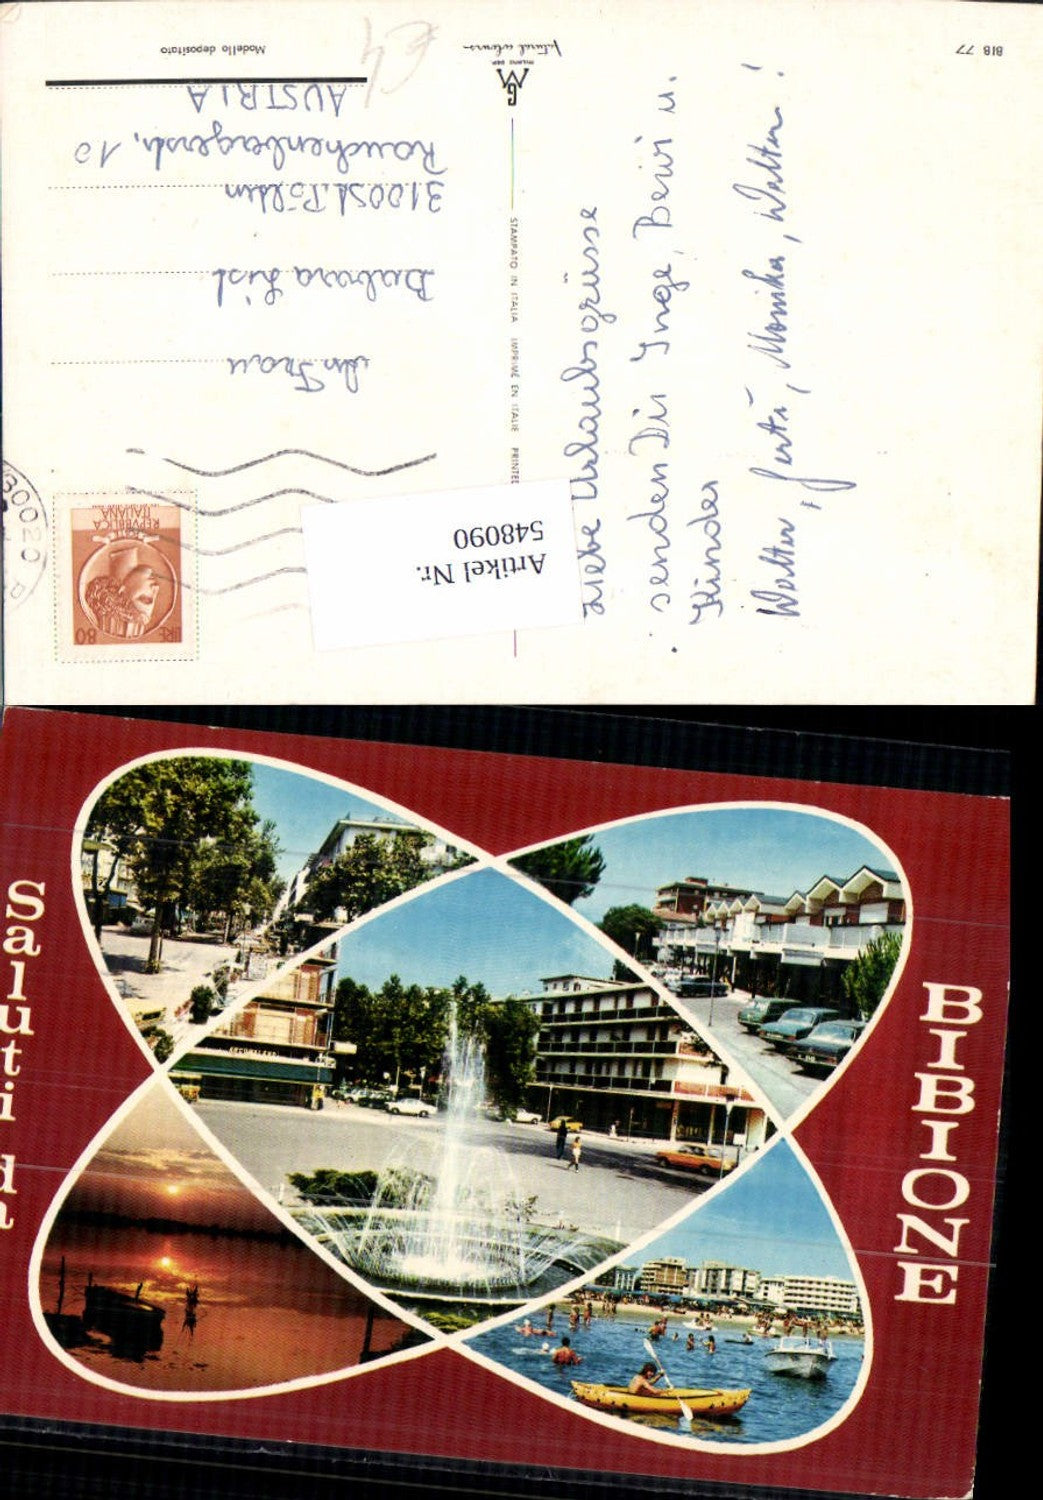 BIB 77
GM
MILANO DEP.
Modello depositato
STAMPATO IN ITALIA IMPRIMÉ EN ITALIE PRINTED
Liebe Urlaubsgrüsse
senden Dir Inge, Berti u.
Kinder
Walter, Monika, Walter!
€4
LIRE 80
REPVBBLICA
ITALIANA
30020
An Frau
Barbara List
3100 St. Pölten
Rauchenbergerstr. 10
AUSTRIA
Artikel Nr.
548090
Saluti da
BIBIONE